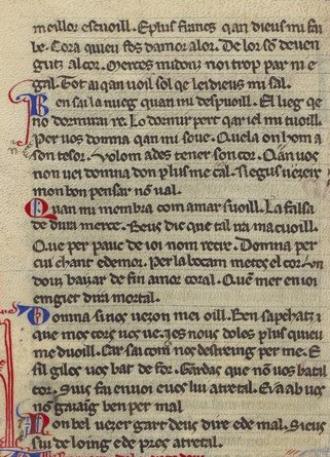 meillor escuoill. E plus francs qan dieus mi fai
be. Cora quieu fos damor alor. De lor sō deuen
gutz al cor. Merces midonz noi trop par ni e
gal. Tot ai qan uoil sol qe lei dieus mi sal.
Ben sai la nueg quan mi despuoill. El lieg qe
no dormirai re. Lo dormir pert qar iel mi tuoill.
Per uos domna qan mi soue. Que la on hom a
son tesor. Vol om ades tener son cor. Qan uos
non uei domna don plus me cal. Negus uezers
mon bon pensar nō ual.
Quan mi membra com amar suoill. La falsa
de mala merce. Deus die que tal ira ma cuoill.
Que per pauc de ioi nom recre. Domna per
cui chant e demor. Per la boca metes el cor. Un
dous baizar de fin amor coral. Quem met en ioi
e mgiet dira mortal.
Domna si nos uezon mei oill. Ben sapchatz
que mos cors uos ue. Ies nous doles plus quieu
me duoill. Car sai com uos destreing per me. E
sil gilos uos bat de for. Gardas que nō uos batal
cor. Sius fai enuoi e uos lui atretal. E ia ab uos
nō gazaig ben per mal
Mon bel uezer gart deus dire e de mal. Sieus
sui de loing e de pres atretal.